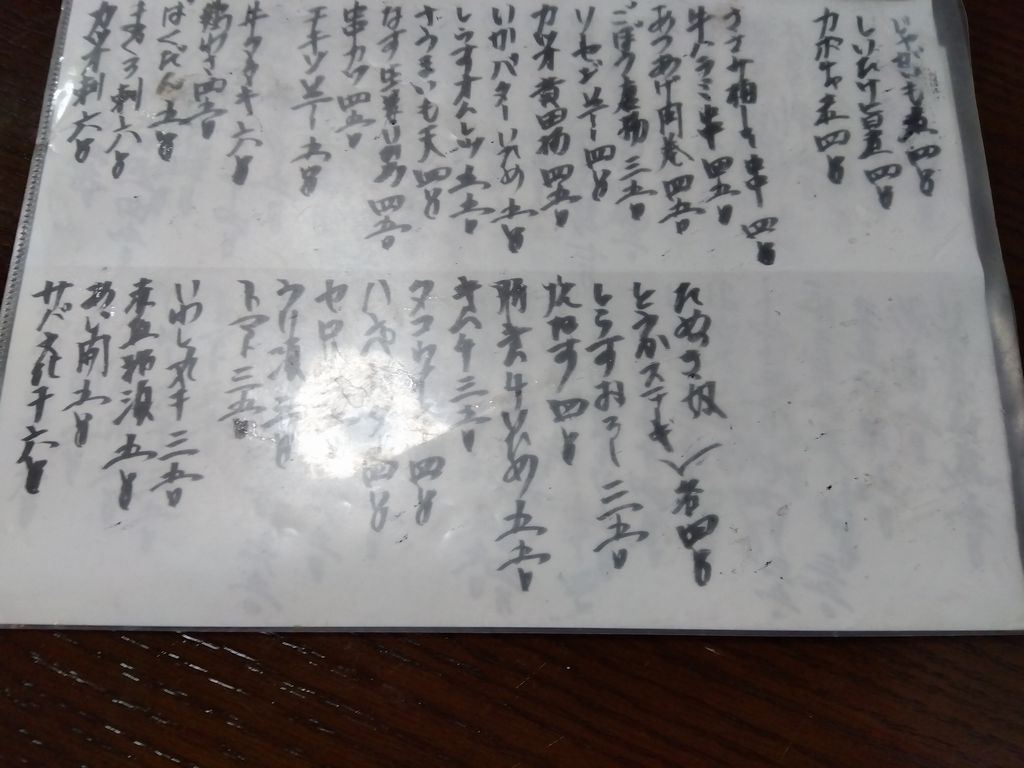 じゃがいも煮 四〇
しいたけ旨煮 四〇
カボチャ煮 四〇
ササケ柚キ串 四〇
牛ハラミ串 四五〇
あつあげ肉巻 四五〇
ごぼう唐揚 三五〇
ソーセージ 四〇
カツオ竜田揚 四五〇
いかバターいため 五〇
しらすオムレツ 五五〇
さつまいも天 四〇
なす生姜いため 四五〇
串カツ 四五〇
五〇
牛タタキ 六〇
鶏わさ 四五〇
ばくだん 五〇
まぐろ刺 六〇
カツオ刺 六〇
たぬき奴
とうふステーキ 各四〇
しらすおろし 三五〇
炊なす 四〇
豚キムチいため 五五〇
キムチ 三五〇
タコウィンナー 四〇
四〇
トマト 三五〇
いわし丸干 三五〇
五〇
あじ開 五〇
サバ文化干 六〇